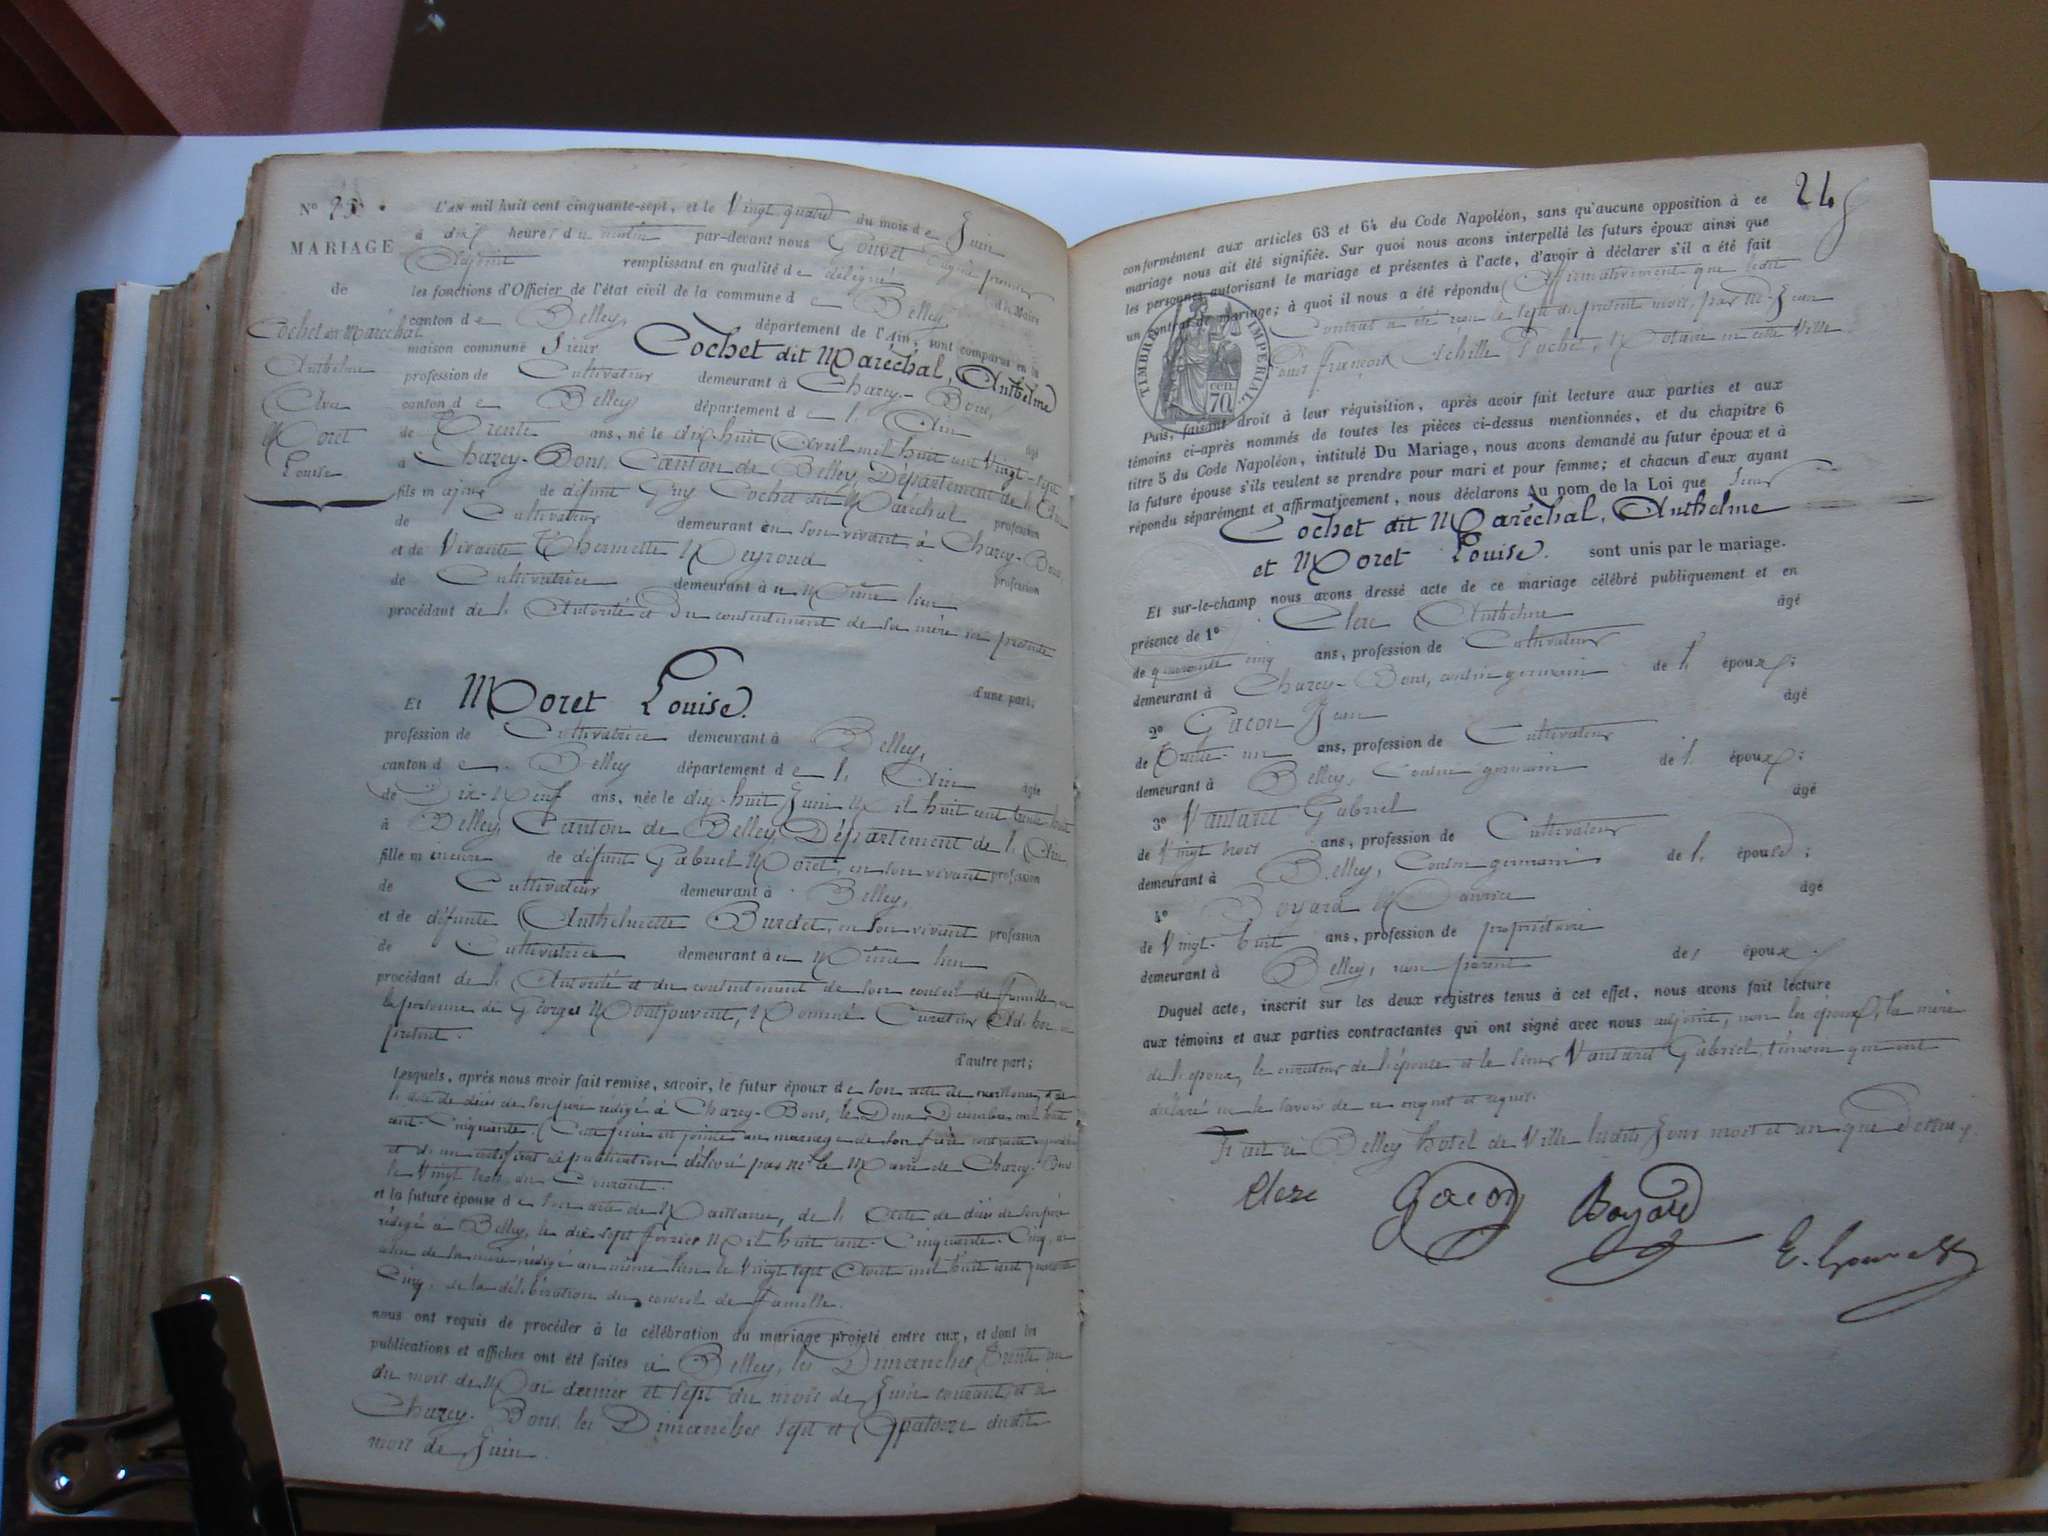 N° 25.
MARIAGE
de
Cochet dit Maréchal
Anthelme
Et
Moret
Louise
L'AN mil huit cent cinquante-sept, et le Vingt quatre du mois de Juin
à dix heures du matin par-devant nous Gouvet Eugène premier
Adjoint remplissant en qualité de délégué du Maire
les fonctions d'Officier de l'état civil de la commune de Belley
canton de Belley, département de l'Ain, sont comparus en la
maison commune Sieur Cochet dit Maréchal, Anthelme
profession de Cultivateur demeurant à Charey-Bons,
canton de Belley département de l'Ain âgé
de Trente ans, né le dix-huit Avril mil huit cent Vingt-sept
à Charey-Bons, Canton de Belley, Département de l'Ain
fils majeur de défunt Guy Cochet dit Maréchal profession
de Cultivateur demeurant en son vivant à Charey-Bons
et de Vivante Thermette Meyroud profession
de Cultivatrice demeurant au Même lieu
procédant de l'Autorité et Du consentement de sa mère ici présente
d'une part;
Et Moret Louise.
profession de Cultivatrice demeurant à Belley,
canton de Belley département de l'Ain âgée
de Dix-Neuf ans, née le dix-huit Juin Mil huit cent trente-huit
à Belley, Canton de Belley, Département de l'Ain,
fille mineure de défunt Gabriel Moret, en son vivant profession
de Cultivateur demeurant à Belley,
et de défunte Anthelmette Burdet, en son vivant profession
de Cultivatrice demeurant au Même lieu
procédant de l'Autorité et du consentement de son conseil de famille, en
la personne de Georges Montjouvent, Nommé Curateur Ad-hoc ici
présent.
d'autre part;
Lesquels, après nous avoir fait remise, savoir, le futur époux de son acte de naissance, de
l'acte de décès de son père rédigé à Charey-Bons, le Deux Décembre mil huit
cent-Cinquante. (Cette pièce est jointe au mariage de son frère
et d'un certificat de publication délivré par Mr le Maire de Charey-Bons
le Vingt trois du Courant.
et la future épouse de son acte de Naissance, de l'Acte de décès de son père
rédigé à Belley, le dix sept février Mil huit cent-Cinquante-Cinq, de
celui de sa mère rédigé au même lieu le Vingt sept Août mil huit cent quarante
Cinq, de la délibération du conseil de famille.
nous ont requis de procéder à la célébration du mariage projeté entre eux, et dont les
publications et affiches ont été faites à Belley, les Dimanches Trente un
du mois de Mai dernier et sept du mois de Juin courant, et à
Charey-Bons, les Dimanches sept et Quatorze dudit
mois de Juin.
24
conformément aux articles 63 et 64 du Code Napoléon, sans qu'aucune opposition à ce
mariage nous ait été signifiée. Sur quoi nous avons interpellé les futurs époux ainsi que
les personnes autorisant le mariage et présentes à l'acte, d'avoir à déclarer s'il a été fait
un contrat de mariage; à quoi il nous a été répondu Affirmativement que ledit
Contrat a été reçu le sept du présent mois, par M. Jean
Louis françois Achille Pochet, Notaire en cette Ville.
TIMBRE IMPÉRIAL
70 cen.
Puis, faisant droit à leur réquisition, après avoir fait lecture aux parties et aux
témoins ci-après nommés de toutes les pièces ci-dessus mentionnées, et du chapitre 6
titre 5 du Code Napoléon, intitulé Du Mariage, nous avons demandé au futur époux et à
la future épouse s'ils veulent se prendre pour mari et pour femme; et chacun d'eux ayant
répondu séparément et affirmativement, nous déclarons Au nom de la Loi que Sieur
Cochet dit Maréchal, Anthelme
et Moret Louise. sont unis par le mariage.
Et sur-le-champ nous avons dressé acte de ce mariage célébré publiquement et en
présence de 1° Clerc Anthelme âgé
de quarante cinq ans, profession de Cultivateur
demeurant à Charey-Bons, cousin germain de l'époux;
2° Gacon Jean âgé
de Trente-un ans, profession de Cultivateur
demeurant à Belley, Cousin germain de l'époux;
3° Vantaret Gabriel âgé
de Vingt trois ans, profession de Cultivateur
demeurant à Belley, Cousin germain de l'épouse;
4° Boyard Maurice âgé
de Vingt-huit ans, profession de propriétaire
demeurant à Belley, non parent des époux.
Duquel acte, inscrit sur les deux registres tenus à cet effet, nous avons fait lecture
aux témoins et aux parties contractantes qui ont signé avec nous adjoint, non les époux, la mère
de l'époux, le curateur de l'épouse et le sieur Vantaret Gabriel, témoin qui ont
déclaré ne le savoir de ce enquis et requis.
Fait à Belley hôtel de Ville lesdits Jour mois et an que Dessus.
Clerc Gacon Boyard E. Gouvet